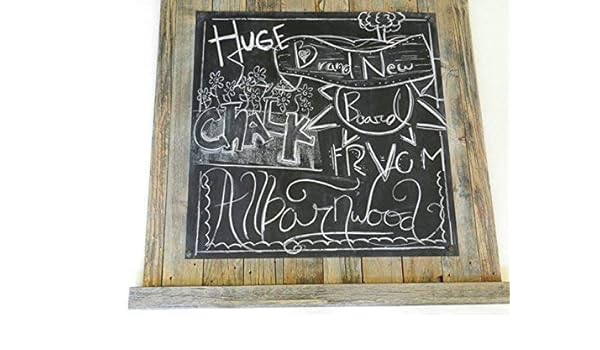 HUGE
Brand New
CHALK
Board
FRVOM
AllBarnwood